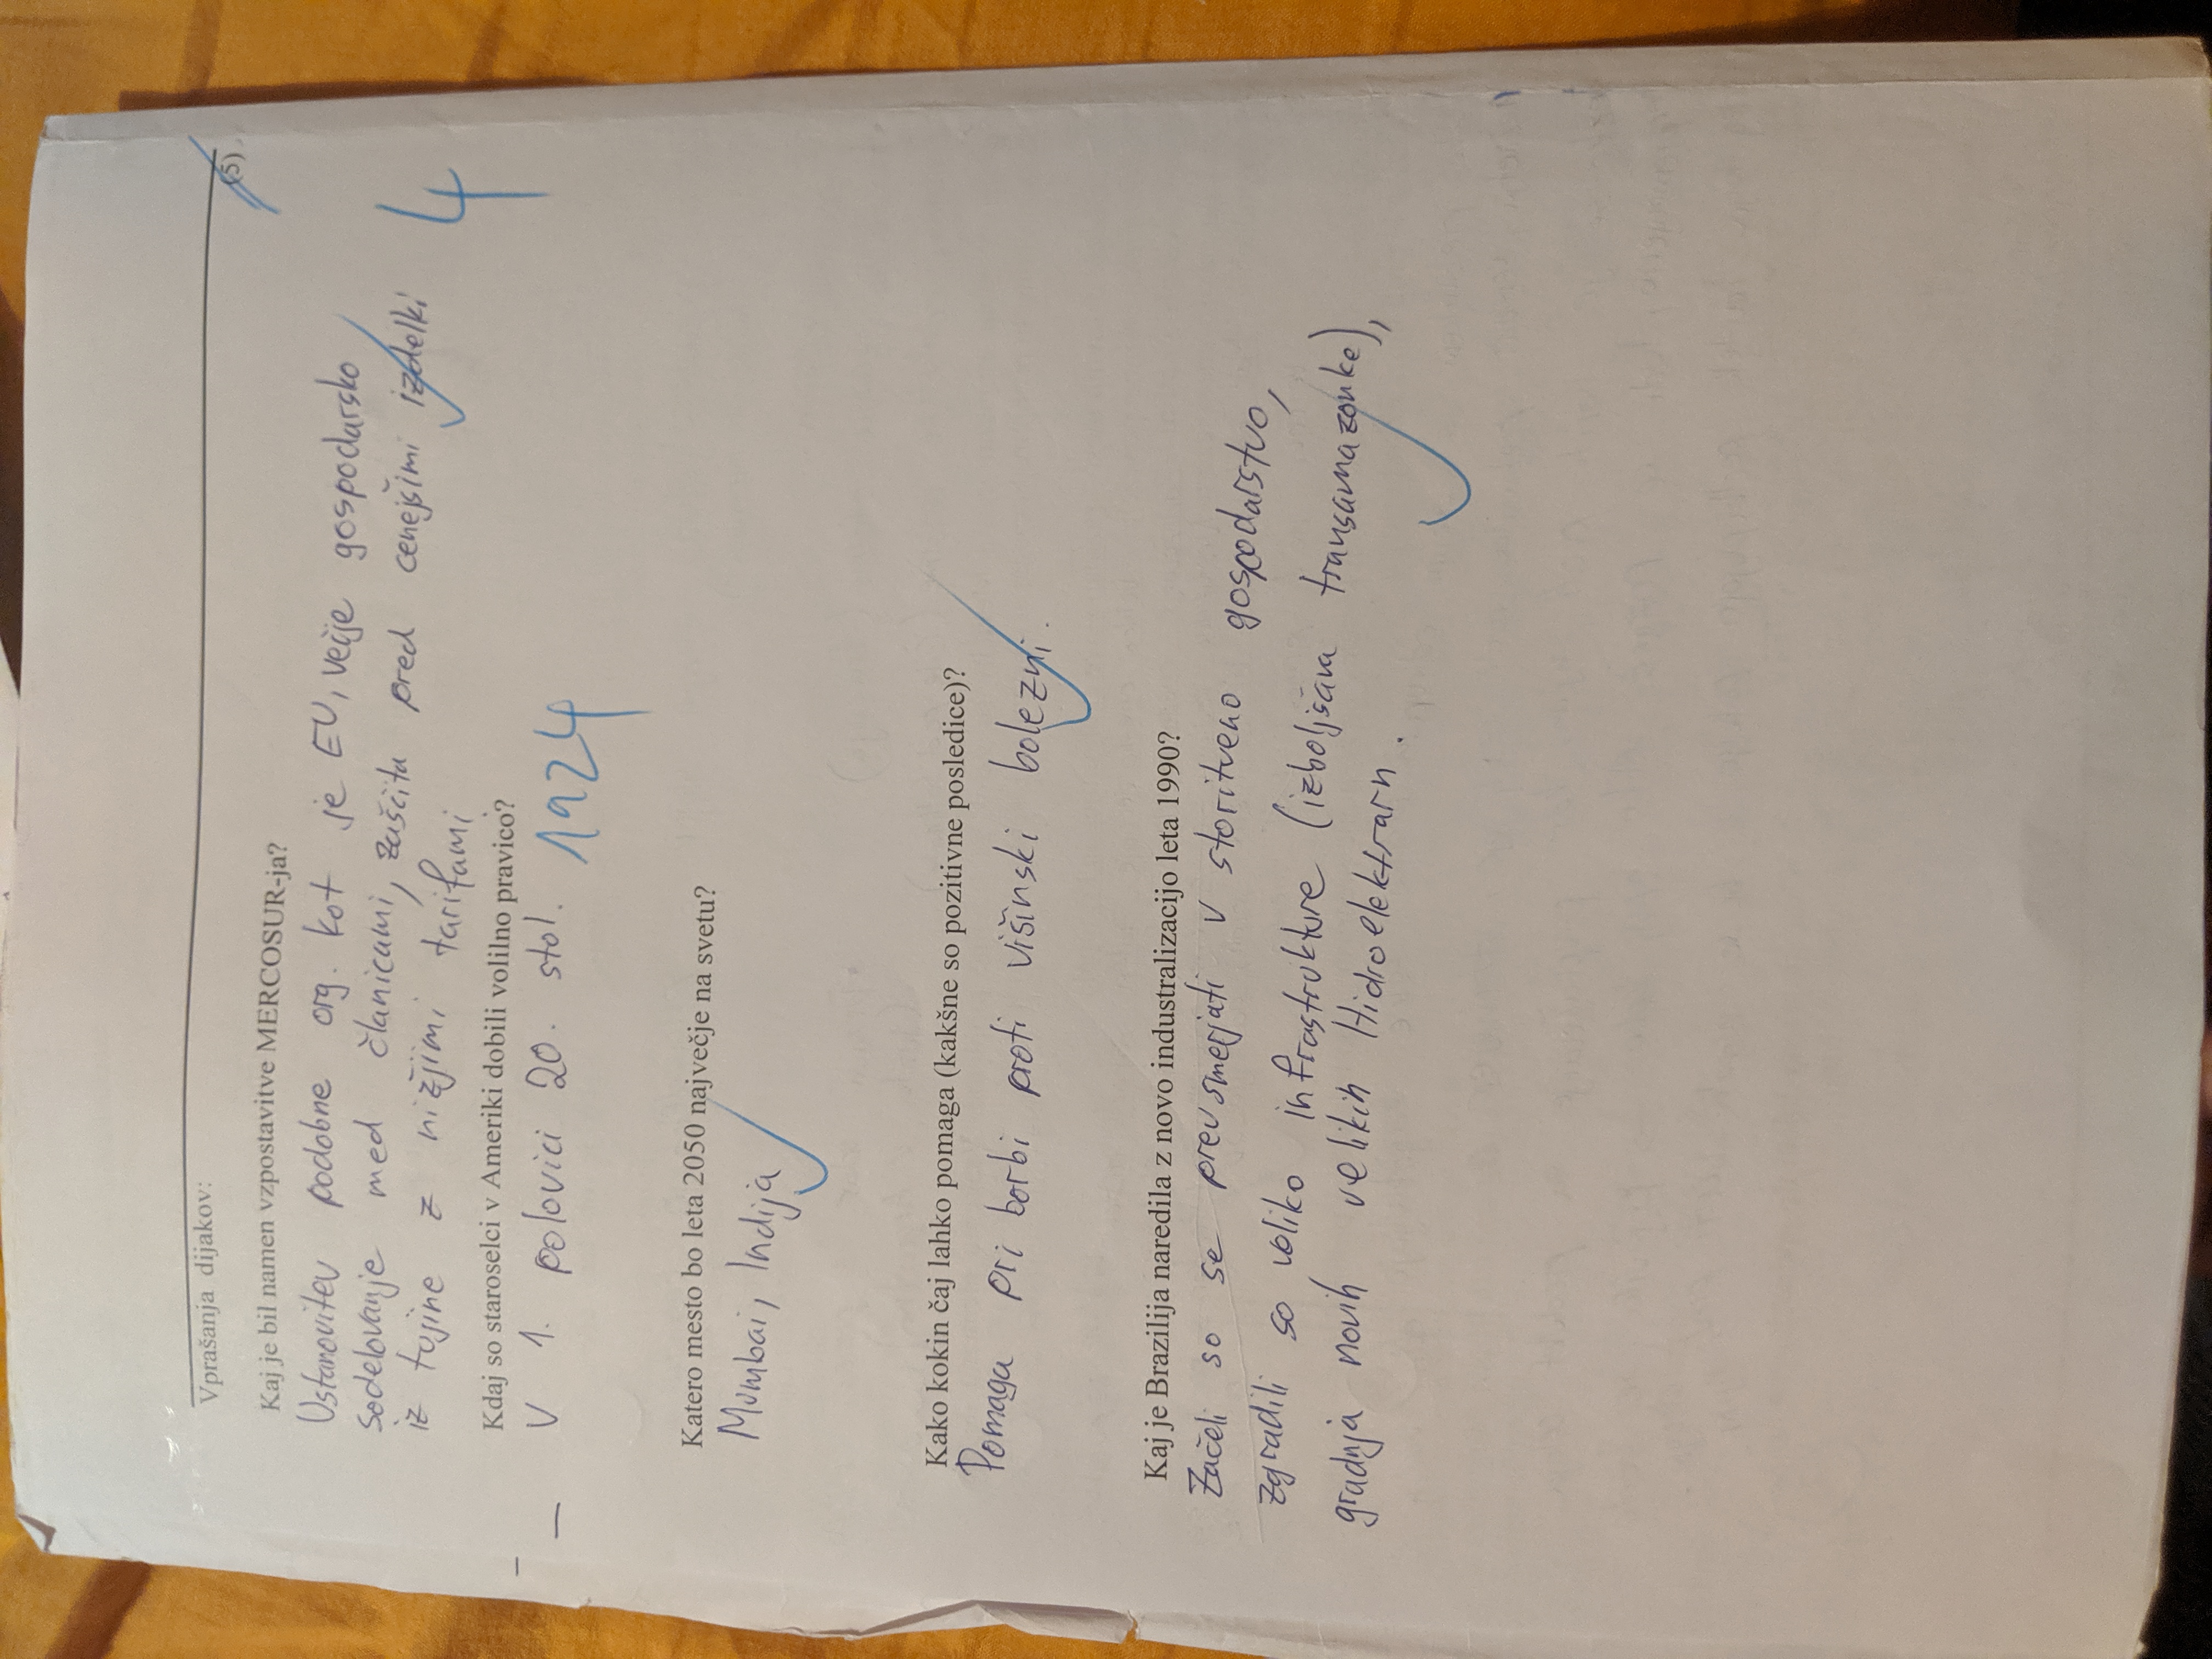 Vprašanja dijakov:
(5)
Kaj je bil namen vzpostavitve MERCOSUR-ja?
Ustanovitev podobne org. kot je EU, večje gospodarsko
sodelovanje med članicami, zaščita pred cenejšimi izdelki
iz tujine z nižjimi tarifami.
4
Kdaj so staroselci v Ameriki dobili volilno pravico?
V 1. polovici 20. stol. 1924
Katero mesto bo leta 2050 največje na svetu?
Mumbai, Indija
Kako kokin čaj lahko pomaga (kakšne so pozitivne posledice)?
Pomaga pri borbi proti višinski bolezni.
Kaj je Brazilija naredila z novo industralizacijo leta 1990?
Začeli so se preusmerjati v storitveno gospodarstvo,
zgradili so veliko infrastrukture (izboljšava transamazonke),
gradnja novih velikih Hidroelektrarn.